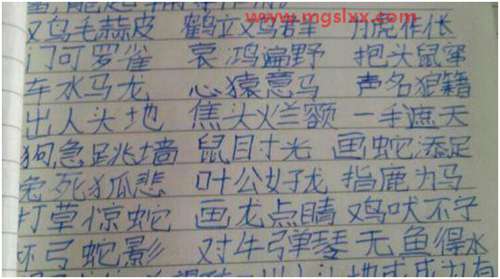 www.mgslxx.com
鸡毛蒜皮 鹤立鸡群 为虎作伥
门可罗雀 哀鸿遍野 抱头鼠窜
车水马龙 心猿意马 声名狼籍
出人头地 焦头烂额 一手遮天
狗急跳墙 鼠目寸光 画蛇添足
兔死狐悲 叶公好龙 指鹿为马
打草惊蛇 画龙点睛 鸡吠不宁
杯弓蛇影 对牛弹琴 无鱼得水